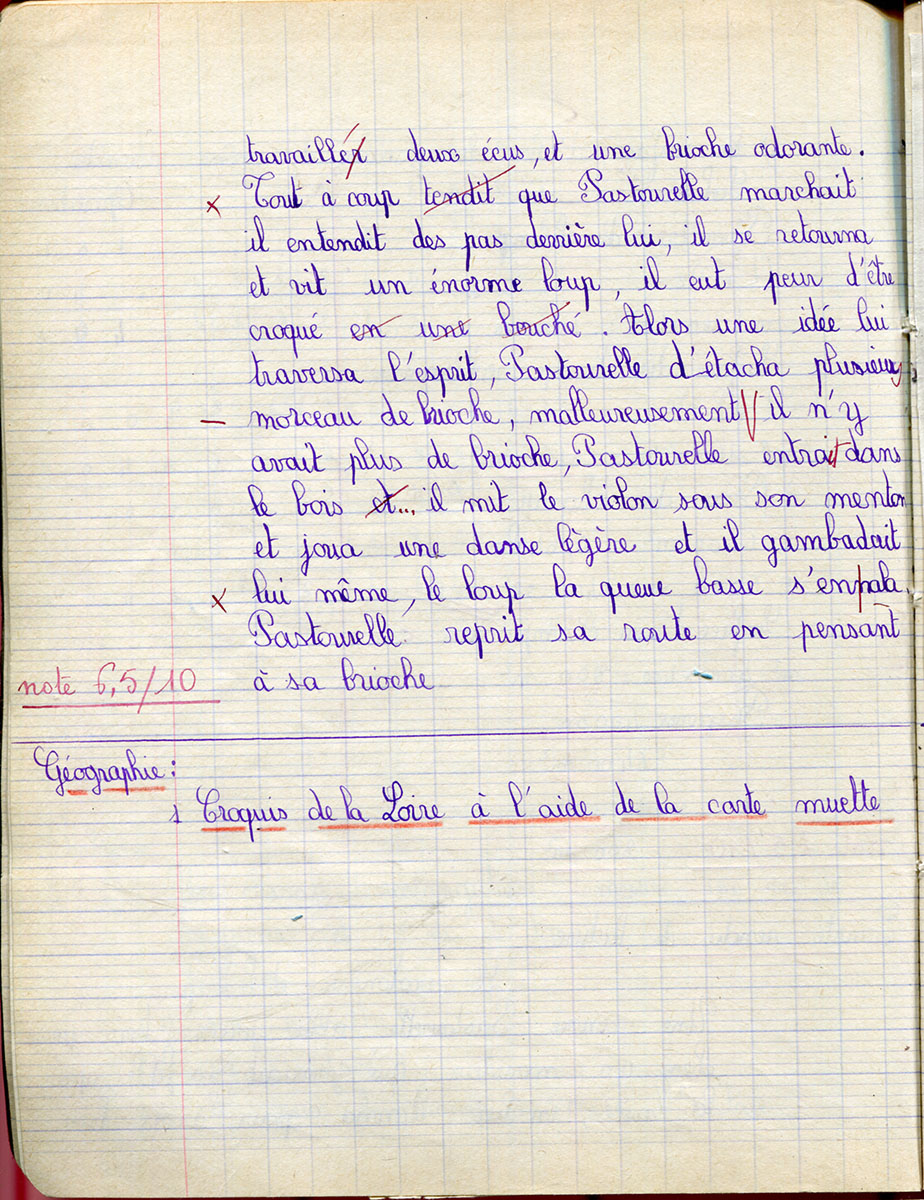 travaillér deux écus, et une brioche odorante.
x Tout à coup tendit que Pastourelle marchait
il entendit des pas derrière lui, il se retourna
et vit un énorme loup, il eut peur d'être
croqué en une bouché. Alors une idée lui
traversa l'esprit, Pastourelle d'étacha plusieurs
— morceau de brioche, malleureusement il n'y
avait plus de brioche, Pastourelle entrait dans
le bois et... il mit le violon sous son menton
et joua une danse légère et il gambadait
x lui même, le loup la queue basse s'en
Pastourelle reprit sa route en pensant
note 6,5/10 à sa brioche
Géographie:
1 Croquis de la Loire à l'aide de la carte muette